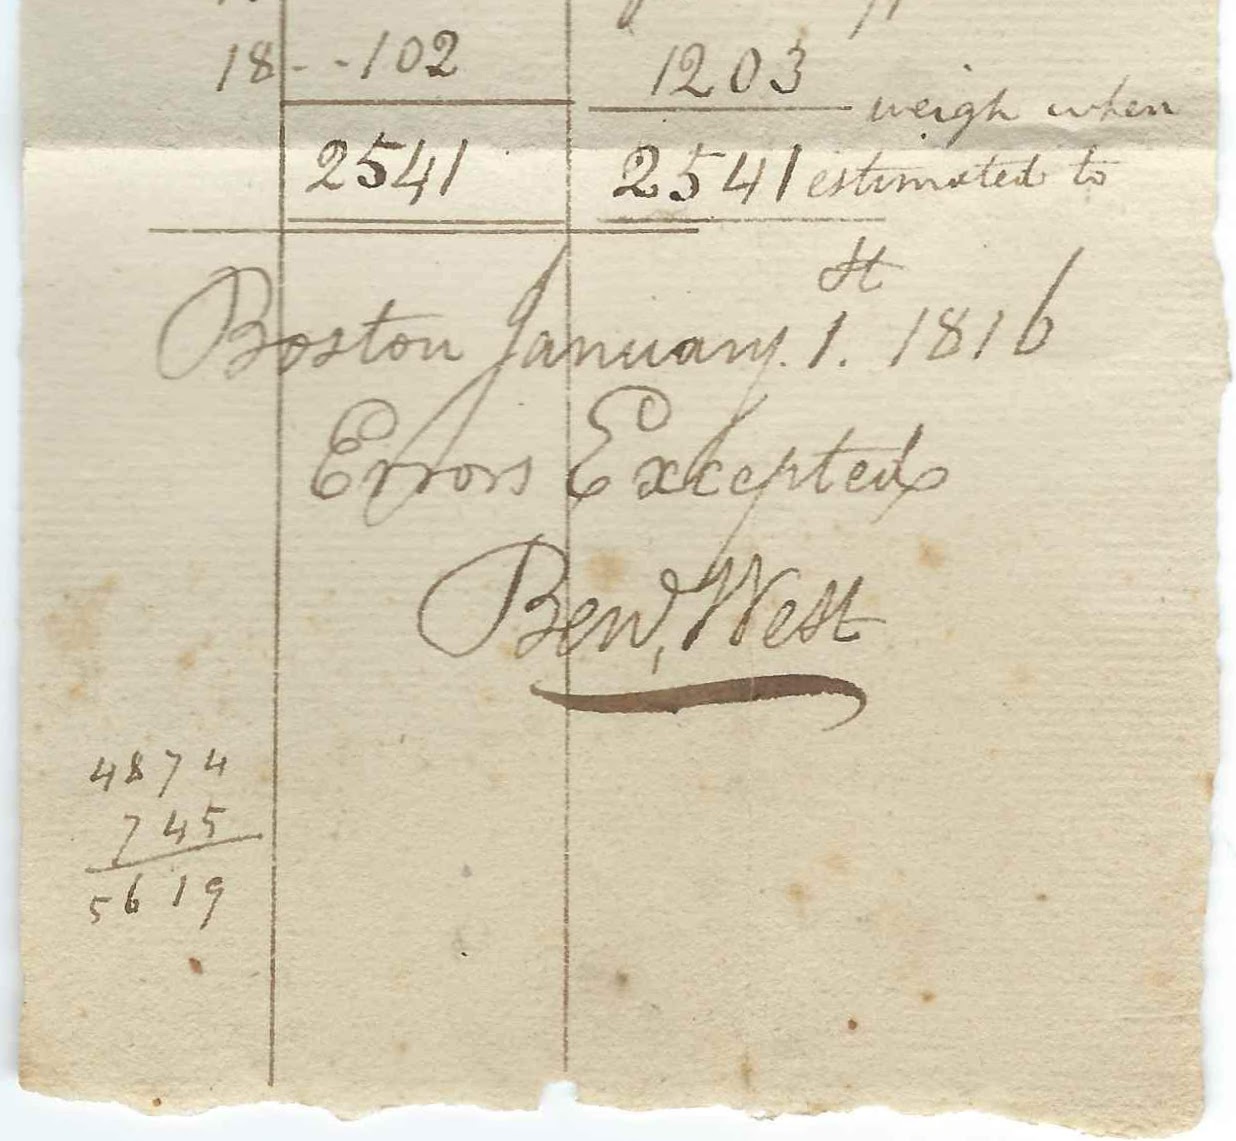 18 - - 102 1203 weigh when
2541 2541 estimated to
Boston January. 1.st 1816
Errors Excepted
Benj, West
4874
745
5619